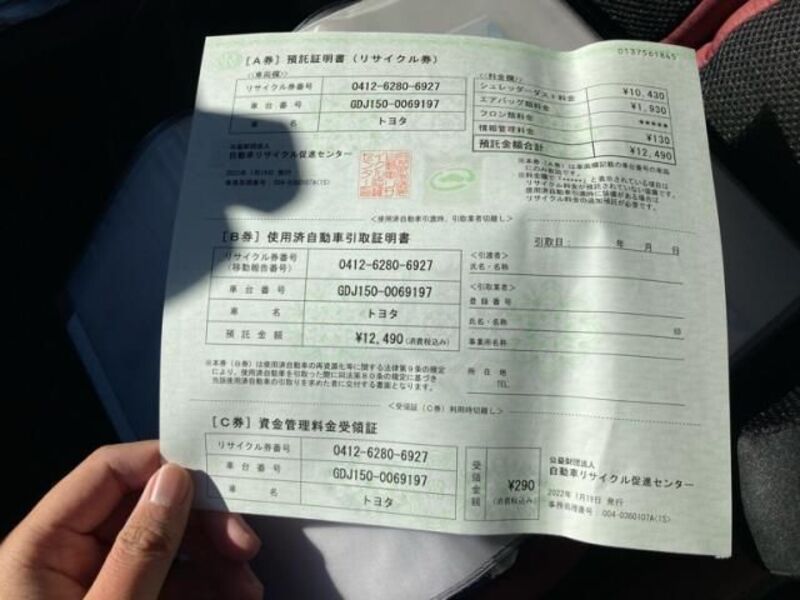 0137561845
[A券] 預託証明書（リサイクル券）
<車両欄>
リサイクル券番号 0412-6280-6927
車台番号 GDJ150-0069197
車名 トヨタ
<料金欄>
シュレッダーダスト料金 ¥10,430
エアバッグ類料金 ¥1,930
フロン類料金 *****
情報管理料金 ¥130
預託金額合計 ¥12,490
公益財団法人
自動車リサイクル促進センター
2022年 1月19日 発行
事務処理番号: 004-0360107A(1S)
※本券（A券）は車両欄記載の車台番号の車両
にのみ有効です。
※料金欄で「*****」と表示されている項目は
リサイクル料金が預託されていない装備です。
使用済自動車引渡時に装備がある場合は
リサイクル料金の追加預託が必要です。
<使用済自動車引渡時、引取業者切離し>
[B券] 使用済自動車引取証明書
引取日: 年 月 日
リサイクル券番号
（移動報告番号） 0412-6280-6927
車台番号 GDJ150-0069197
車名 トヨタ
預託金額 ¥12,490(消費税込み)
<引渡者>
氏名・名称
<引取業者>
登録番号
氏名・名称 印
事業所名称
所在地
TEL
※本券（B券）は使用済自動車の再資源化等に関する法律第9条の規定
により、使用済自動車を引取った際に同法第80条の規定に基づき
当該使用済自動車の引取りを求めた者に交付する書面となります。
<受領証（C券）利用時切離し>
[C券] 資金管理料金受領証
リサイクル券番号 0412-6280-6927
車台番号 GDJ150-0069197
車名 トヨタ
受領金額 ¥290
(消費税込み)
公益財団法人
自動車リサイクル促進センター
2022年 1月19日 発行
事務処理番号: 004-0360107A(1S)